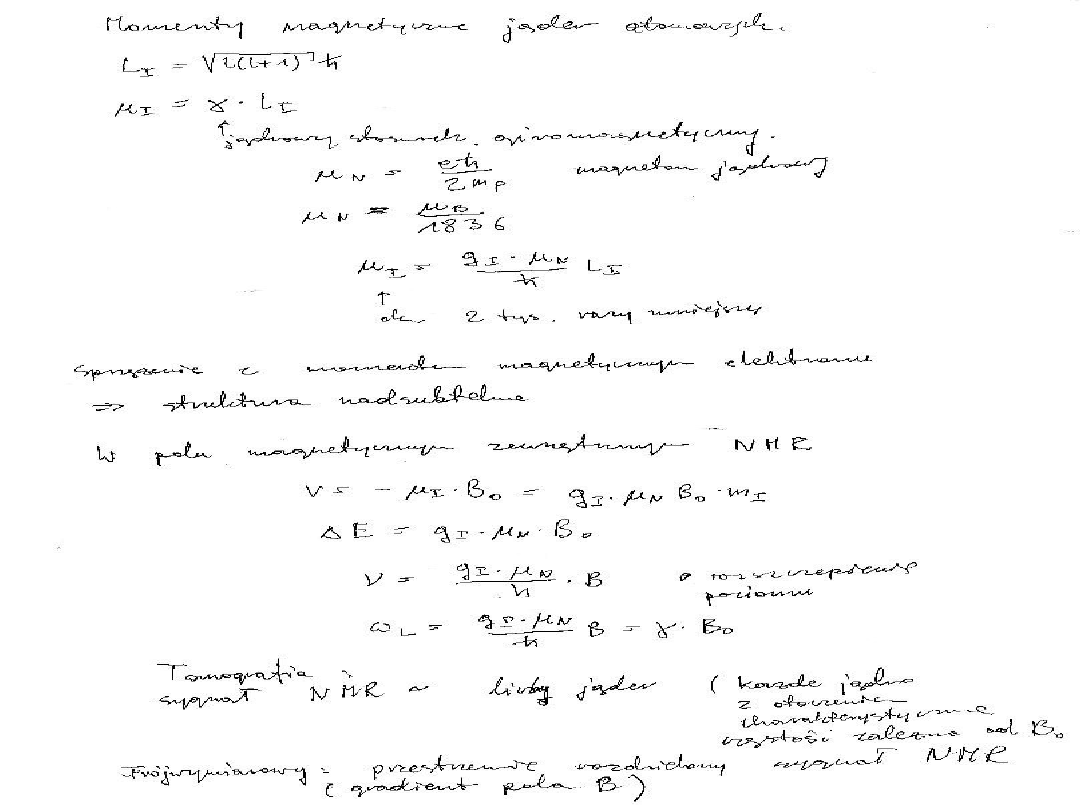 Momenty magnetyczne jąder atomowych.
L_I = √l(l+1) ħ
μ_I = γ · L_I
↑ jądrowy stosunek giromagnetyczny.
μ_N = eħ / 2m_p magneton jądrowy
μ_N = μ_B / 1836
μ_I = g_I · μ_N / ħ L_I
↑
ok 2 tys. razy mniejszy
Sprzężenie z momentem magnetycznym elektronów
⇒ struktura nadsubtelna
W polu magnetycznym zewnętrznym NMR
V = - μ_I · B_0 = g_I · μ_N B_0 · m_I
ΔE = g_I · μ_N · B_0
ν = g_I · μ_N / h · B rozszczepienie
poziomu
ω_L = g_I · μ_N / ħ B = γ · B_0
Tomografia
sygnał NMR ~ liczby jąder ( każde jądro
z otoczeniem
charakterystyczne
częstości zależne od B_0
Trójwymiarowy : przestrzennie rozdzielony sygnał NMR
( gradient pola B )